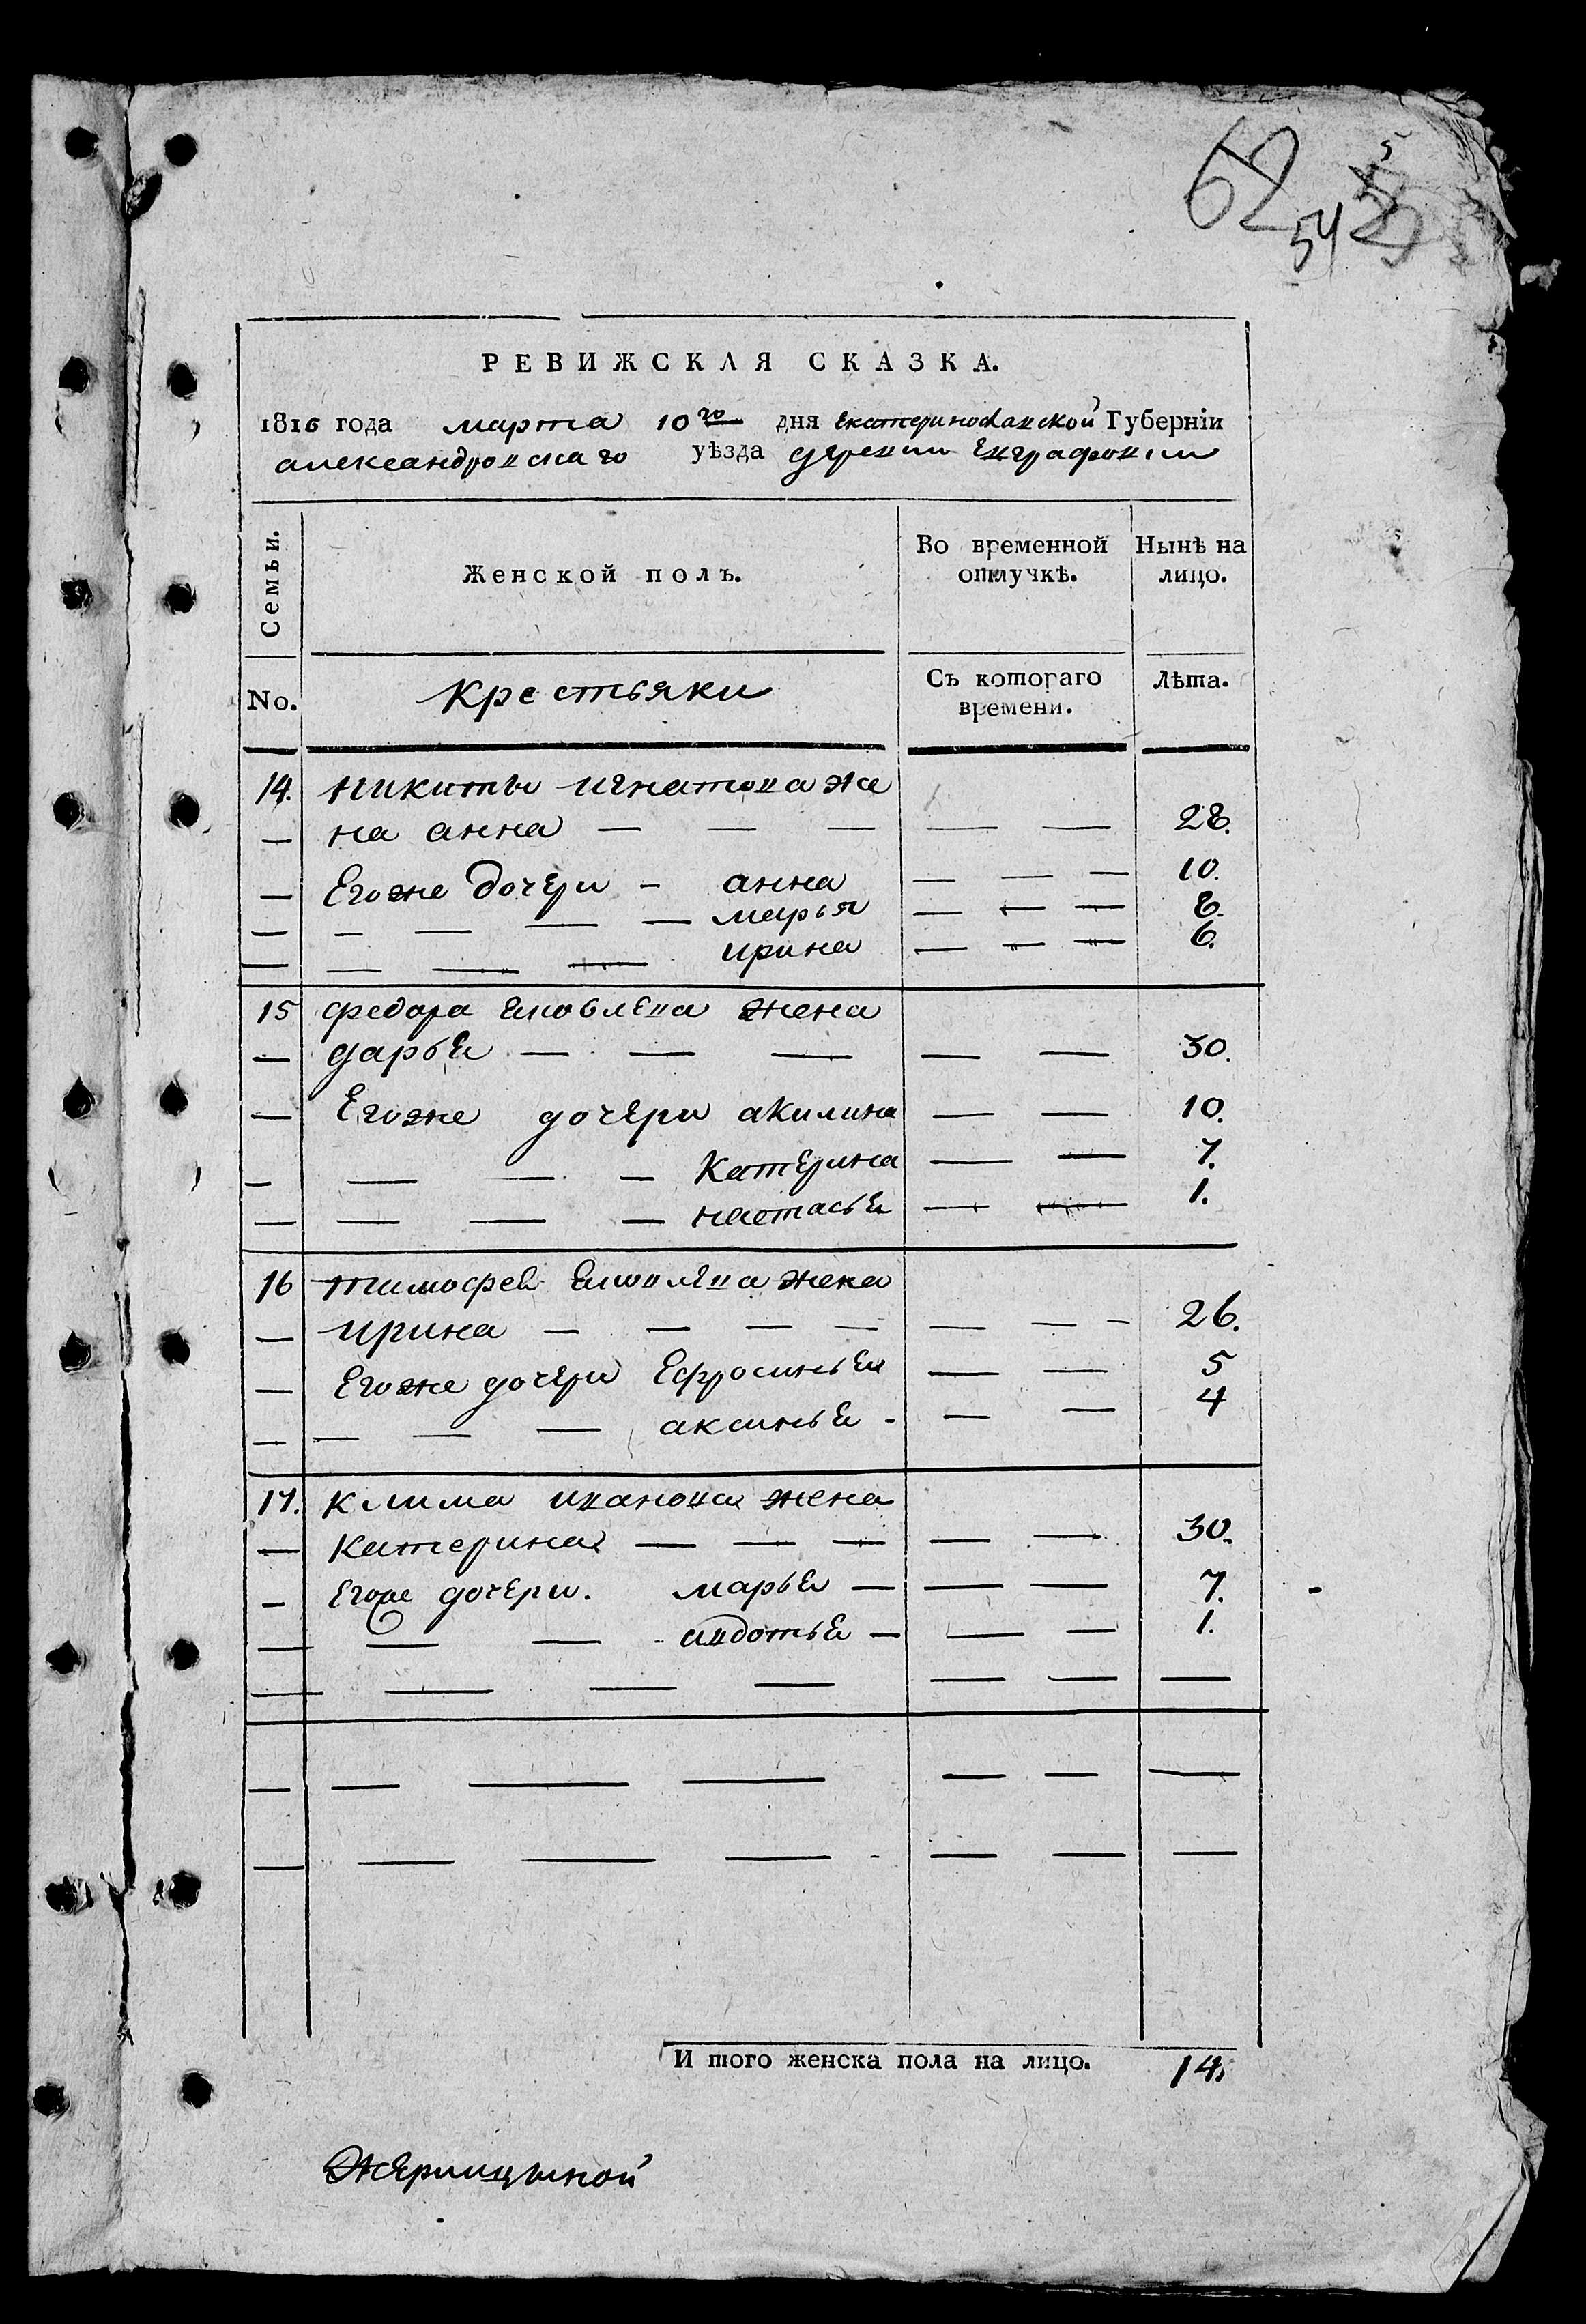 62 54 5
РЕВИЖСКАЯ СКАЗКА.
1816 года марта 10го дня екатеринославской Губерніи
александровскаго уѣзда деревни Евграфовки
Семьи. Женской полъ. Во временной отлучкѣ. Нынѣ на лицо.
No. крестьянки Съ котораго времени. Лѣта.
14. никиты игнатова же
— на анна — — — — — 28.
— Егоже дочери – анна — — — 10.
— — — — — марья — — — 8.
— — — — ирина — — — 6.
15 федора яковлева жена
— дарья — — — — — 30.
— Егоже дочери акилина — — 10.
— — — — катерина — — 7.
— — — — настасья — — 1.
16 тимофея яковлева жена
— ирина — — — — — — – 26.
— Егоже дочери Ефросинья — — 5
— — — — аксинья - — — 4
17. клима иванова жена
— катерина — — — — — 30.
— Егоже дочери. марья — — — 7.
— — — авдотья — — — 1.
— — — — — — —
— — — — — — —
— — — — - — — —
И того женска пола на лицо. 14.